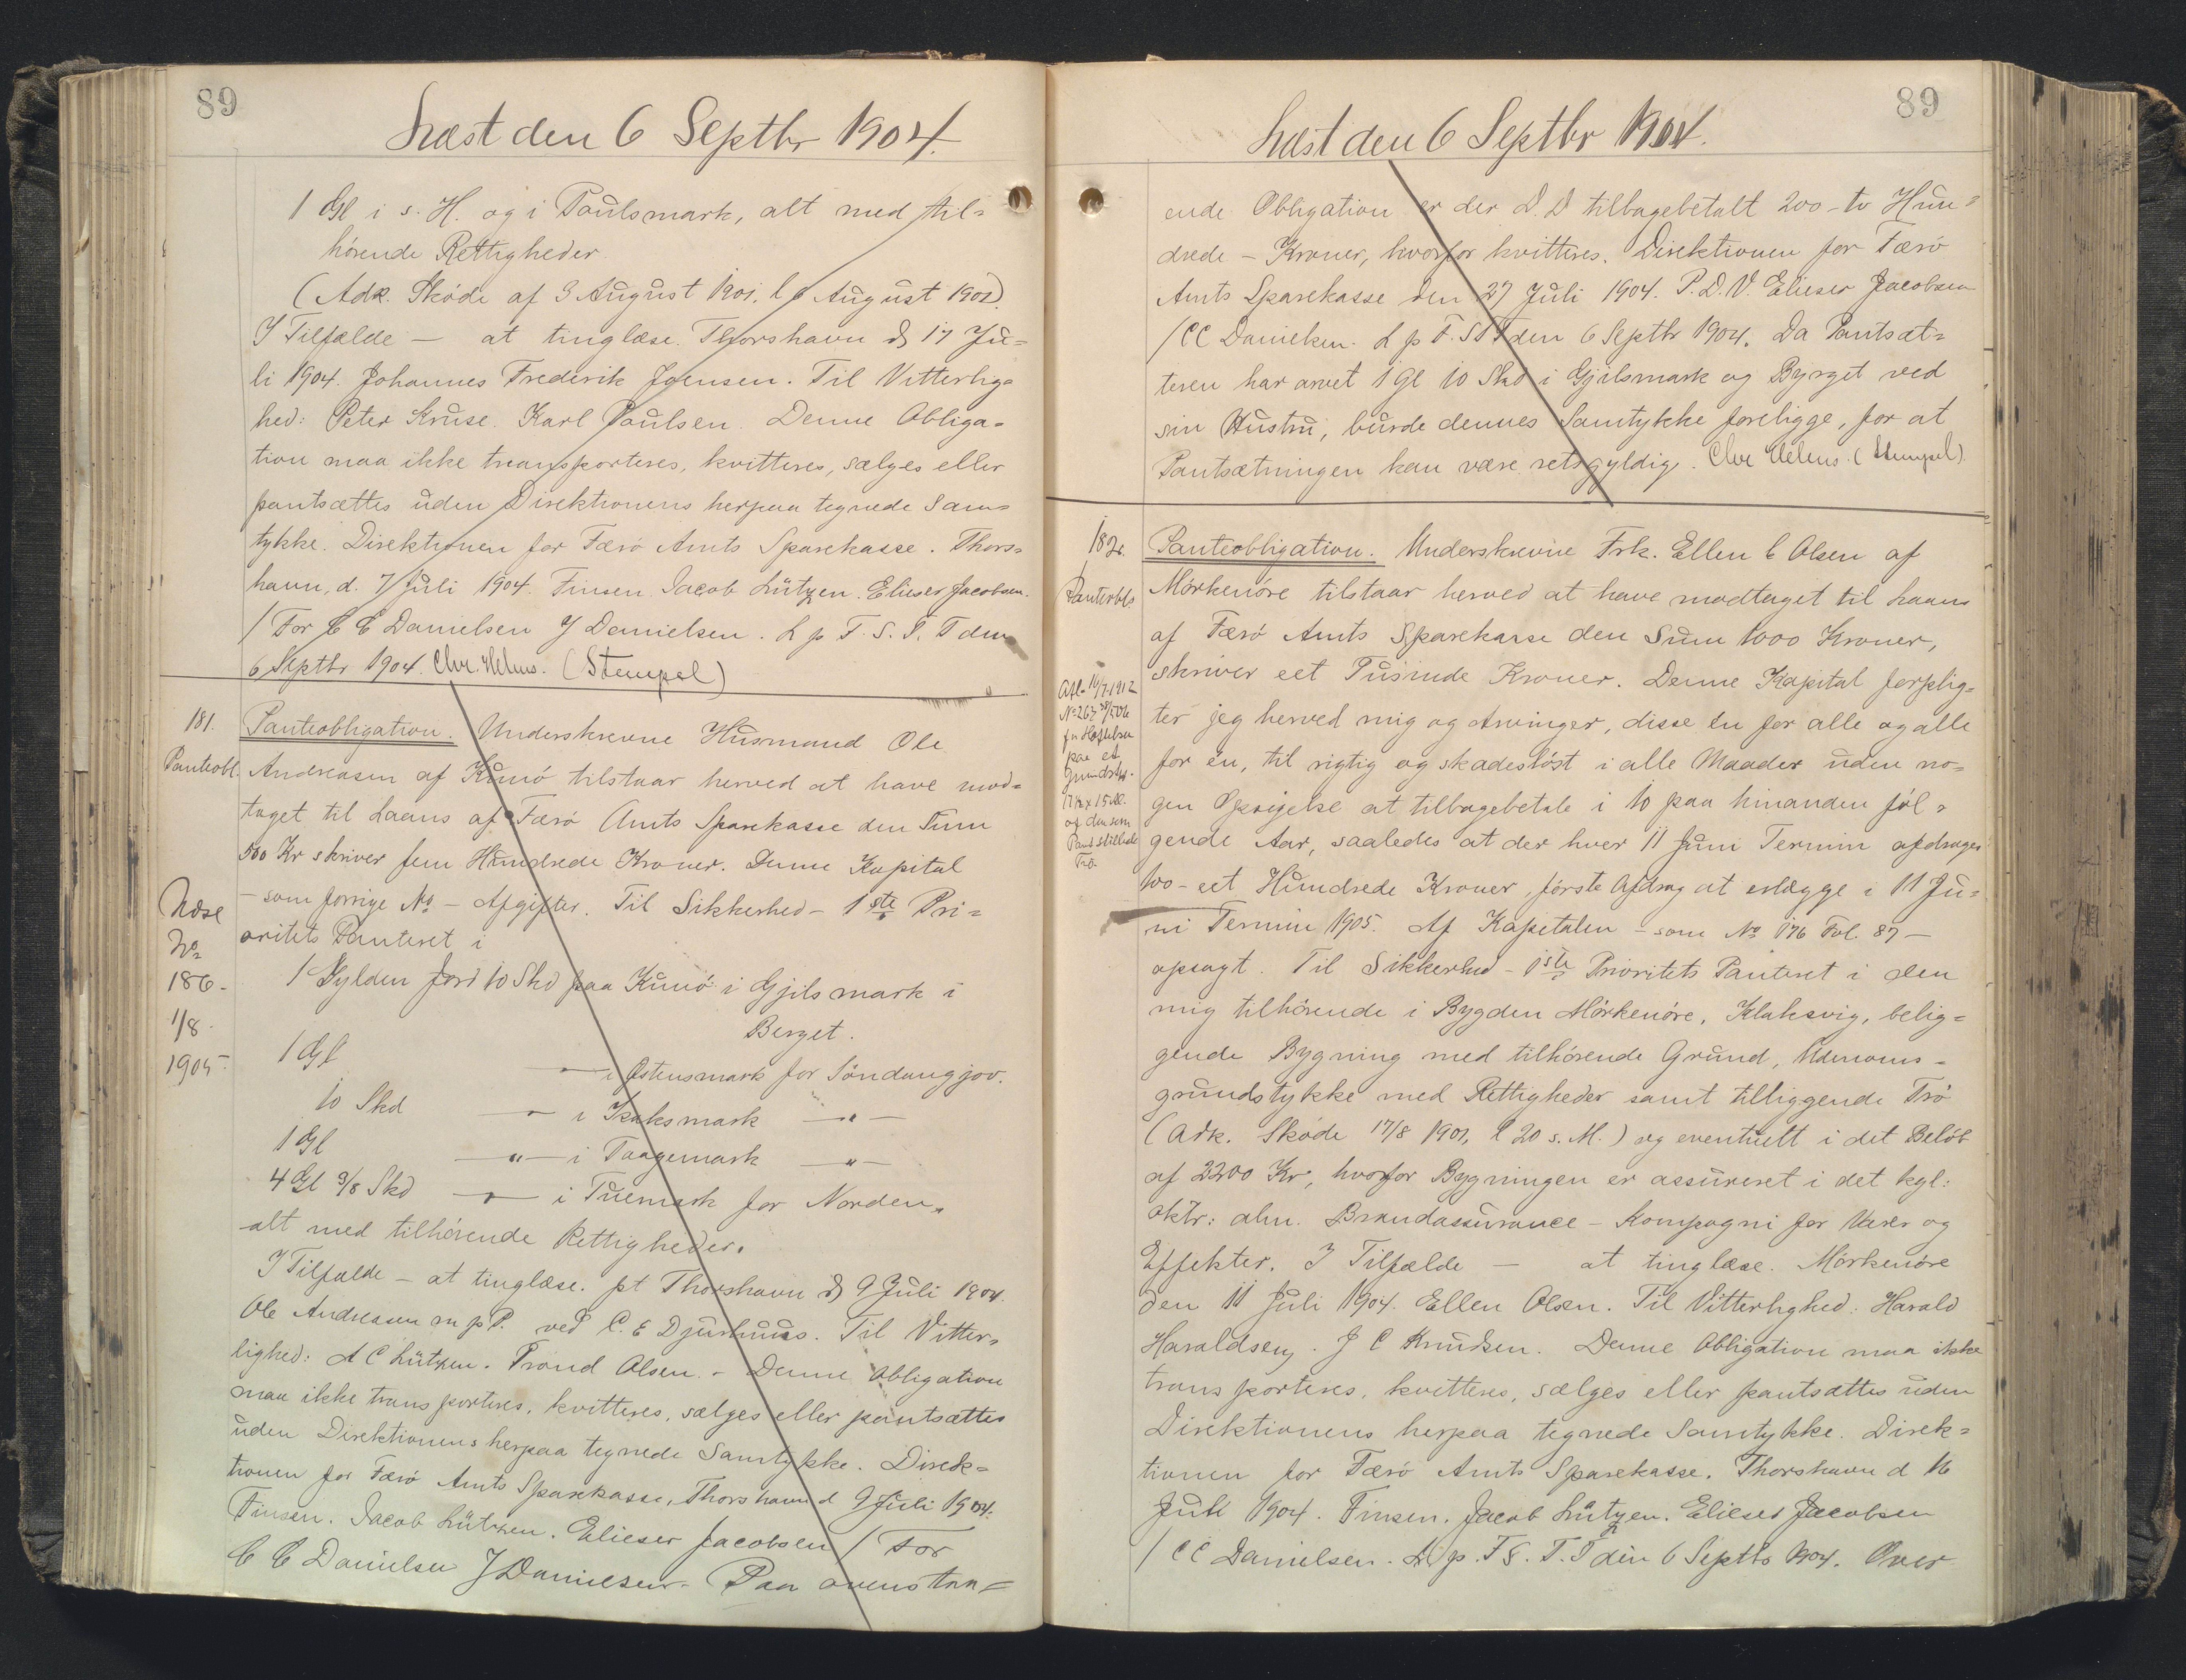 89
Læst den 6 Septbr 1904.
1 Gl i s. H. og i Paulsmark, alt med til-
hörende Rettigheder.
(Adk. Sköde af 3 August 1901, l 6 August 1901).
I Tilfælde — at tinglæse. Thorshavn d 17 Ju-
li 1904. Johannes Frederik Joensen. Til Vitterlig-
hed: Peter Kruse. Karl Poulsen. Denne Obliga-
tion maa ikke transporteres, kvitteres, sælges eller
pantsættes uden Direktionens herpaa tegnede Sam-
tykke. Direktionen for Færö Amts Sparekasse. Thors-
havn, d. 7 Juli 1904. Finsen. Jacob Lützen. Elieser Jacobsen.
/ For C C Danielsen J Danielsen. L p F. S. T. T den
6 Septbr 1904. Chr. Helms. (Stempel)
181.
Panteobl.
Læse
No
186-
1/8-
1905-
Panteobligation. Underskrevne Husmand Ole
Andreasen af Kunö tilstaar herved at have mod-
taget til Laans af Færö Amts Sparekasse den Sum
500 Kr skriver fem Hundrede Kroner. Denne Kapital
— som forrige No — Afgifter. Til Sikkerhed — 1ste Pri-
oritets Panteret i
1 Gylden Jord 10 Skd paa Kunö i Gjilsmark i
Byrget.
1 Gl —"— i Östensmark for Söndangjov.
10 Skd —"— i Isaksmark —"—
1 Gl —"— i Taagemark —"—
4 Gl 3/8 Skd —"— i Tuemark for Norden,
alt med tilhörende Rettigheder.
I Tilfælde — at tinglæse. pt Thorshavn d 9 Juli 1904.
Ole Andreasen m p P. ved C. E Djurhuus. Til Vitter-
lighed: A C Lützen. Trond Olsen. - Denne Obligation
maa ikke transporteres, kvitteres, sælges eller pantsættes
uden Direktionens herpaa tegnede Samtykke. Direk-
tionen for Færö Amts Sparekasse, Thorshavn d 9 Juli 1904.
Finsen. Jacob Lützen. Elieser Jacobsen / For
C C Danielsen J Danielsen. Paa ovenstaa-
89
Læst den 6 Septbr 1904.
ende Obligation er der D. D tilbagebetalt 200 - to Hun-
drede - Kroner, hvorfor kvitteres. Direktionen for Færö
Amts Sparekasse den 27 Juli 1904. P. D. V. Elieser Jacobsen
/ CC Danielsen. L p F. S T T den 6 Septbr 1904. Da Pantsæt-
teren har arvet 1 Gl 10 Skd i Gjilsmark og Byrget ved
sin Hustru, burde dennes Samtykke foreligge, for at
Pantsætningen kan være retsgyldig. Chr Helms. (Stempel)
182.
Panteobl.
Afl. 16/7 1912
No 263
fra Hæftelsen
paa et
Grundstk.
17½ x 15 Al.
af den som
Pant stillede
Trö
Panteobligation. Underskrevne Frk. Ellen C Olsen af
Mörkenöre tilstaar herved at have modtaget til Laans
af Færö Amts Sparekasse den Sum 1000 Kroner,
skriver eet Tusinde Kroner. Denne Kapital forplig-
ter jeg herved mig og Arvinger, disse en for alle og alle
for en, til rigtig og skadeslöst i alle Maader uden no-
gen Opsigelse at tilbagebetale i 10 paa hinanden föl-
gende Aar, saaledes at der hver 11 Juni Termin afdrages
100 - eet Hundrede Kroner, förste Afdrag at erlægge i 11 Ju-
ni Termin 1905. Af Kapitalen — som No 176 Fol. 87 —
opsagt. Til Sikkerhed — 1ste Prioritets Panteret i den
mig tilhörende i Bygden Mörkenöre, Klaksvig, belig-
gende Bygning med tilhörende Grund, Udenoms-
grundstykke med Rettigheder samt tilliggende Trö
(Adk. Sköde 17/8 1901, l 20 s. M.) og eventuelt i det Belöb
af 2200 Kr, hvorfor Bygningen er assureret i det kgl:
oktr: alm. Brandassurance - Kompagni for Varer og
Effekter. I Tilfælde — at tinglæse. Mörkenöre
den 11 Juli 1904. Ellen Olsen. Til Vitterlighed: Harald
Haraldsen. J C Knudsen. Denne Obligation maa ikke
transporteres, kvitteres, sælges eller pantsættes uden
Direktionens herpaa tegnede Samtykke. Direk-
tionen for Færö Amts Sparekasse. Thorshavn d 16
Juli 1904. Finsen. Jacob Lützen. Elieser Jacobsen
/ CC Danielsen. L p. F S. T. T den 6 Septbr 1904. Over